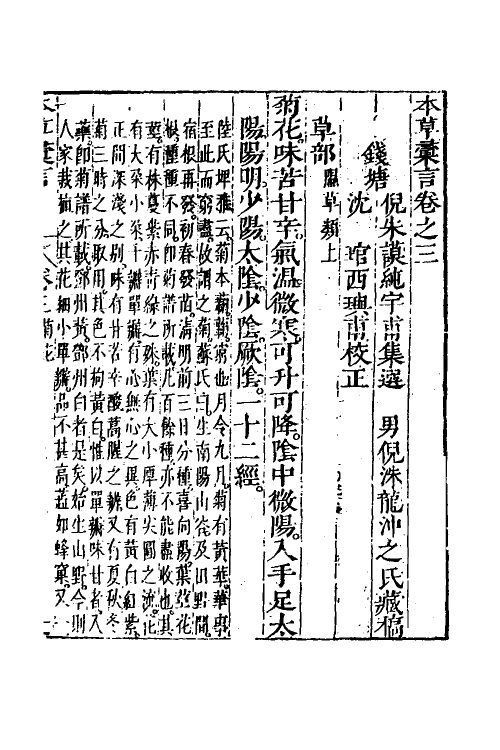 本草彙言卷之三
錢塘
倪朱謨純宇甫集選　男倪洙龍沖之氏藏稿
沈　琯西琪甫校正
草部隰草類上
菊花味苦甘辛氣溫微寒可升可降陰中微陽入手足太
陽陽明少陽太陰少陰厥陰一十二經
陸氏埤雅云菊本作鞠鞠窮也月令九月菊有黃華華事
至此而窮盡故謂之菊蘇氏曰生南陽山谷及田野間
宿根再發初春發苗清明前三日分種喜向陽葉莖花
根種種不同卽菊譜所載几百餘種亦不能盡收也其
莖有株蔓紫赤青綠之殊葉有大小厚薄尖圓之流花
有大朶小朶千瓣單瓣有心無心之異色有黃白紅紫
正間深淺之別味有甘苦辛酸蒿腥之辨又有夏秋冬
菊三時之分取用其色不拘黃白惟以單瓣味甘者入
藥卽菊譜所載鄧州黃鄧州白者是矣始生山野今則
人家栽植之其花細小單瓣品不甚高蕋如蜂窠又
本草彙言　卷三菊花　一